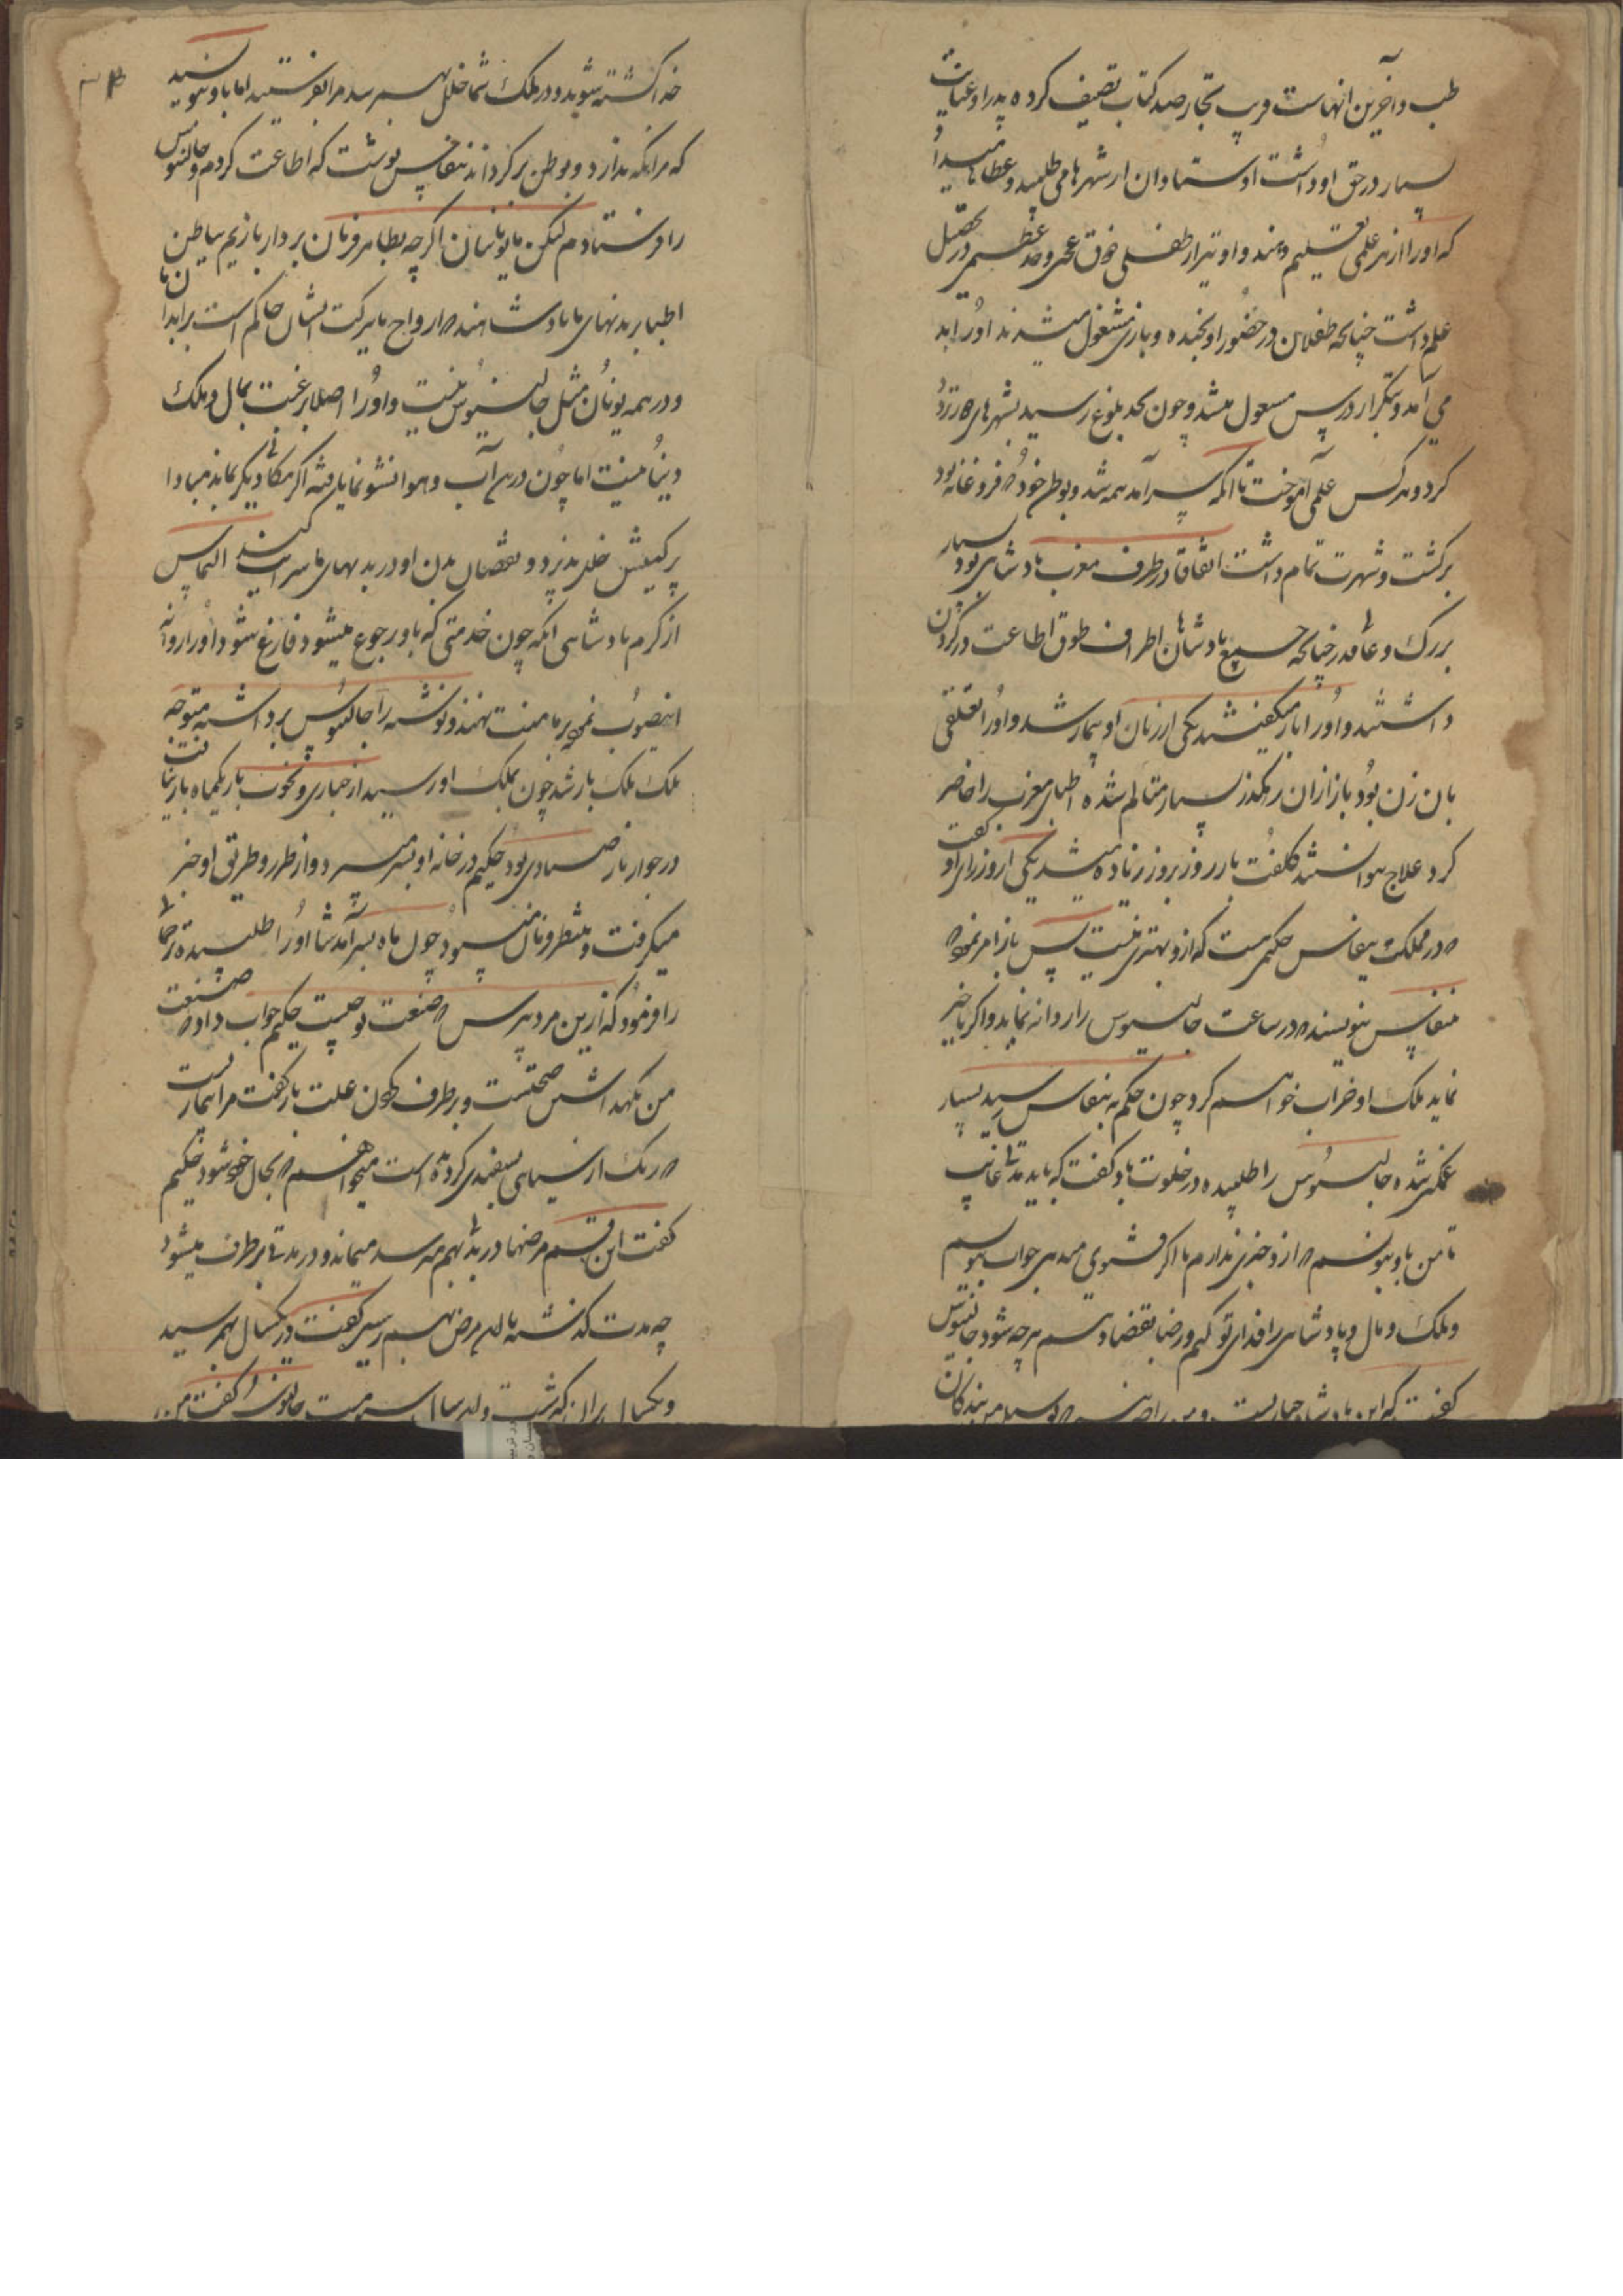 طب و آخرین انهاست قریب بچهارصد کتاب تصنیف کرده پدر او عنایت
بسیار در حق او داشت اوستادان از شهرها می طلبید و عطاها میداد
که او را از هر علمی تعلیم دهند و او نیز از طفلی ذوق عجمی و جد عظیم در تحصیل
علم داشت چنانچه طفلان در حضور او بخنده و بازی مشغول میشدند او را بد
می آمد و بتکرار درس مشغول میشد و چون بحد بلوغ رسید بشهرهای
کرد و هر کس علمی آموخت تا انکه سرآمد همه شد و بوطن خود که فرغانه بود
برگشت و شهرت تمام داشت اتفاقا در طرف مغرب پادشاهی بود بسیار
بزرگ و عالیقدر چنانچه جمیع پادشاهان اطراف طوق اطاعت در گردن
داشتند و او را باز میگفتند یکی از زنان او بیمار شد و او را تعلقی
بان زن بود باز ازان رهگذر بسیار متالم شده اطبای مغرب را حاضر
کرد علاج نتوانستند کلفت باز روز بروز زیاده میشد یکی از وزرای او گفت
که در مملکت بنقاس حکیمی هست که ازو بهتری نیست پس باز امر نمود که
بنقاس بنویسند که در ساعت جالینوس را روانه نماید و اگر تاخیر
نماید ملک او خراب خواهم کرد چون حکم به بنقاس رسید بسیار
غمگین شده جالینوس را طلبیده در خلوت باو گفت که باید مدتی غایب
تا من باو بنویسم که ازو خبری ندارم یا اگر فتوی میدهی جواب بنویسم
و ملک و مال و پادشاهی را فدای تو کنم و رضا بقضا دهم هر چه شود جالینوس
گفت که این پادشاه جباریست و من راضی نیستم که بندگان
خدا کشته شوند و در ملک شما خلل بهم رسد مرا بفرستید اما باو بنویسید
که مرا نگه ندارد و بوطن برگرداند بنقاس نوشت که اطاعت کردم و جالینوس
را فرستادم لیکن ما یونانیان اگر چه بظاهر فرمان بردار بازیم بباطن
اطبا بر بدنهای ما پادشاهند که ارواح ما ببرکت ایشان حاکم است بر ابدان ما
و در همه یونان مثل جالینوس نیست و او را اصلا رغبت بمال و ملک
دنیا نیست اما چون درین آب و هوا نشو و نما یافته اگر بمکانی دیگر بماند مبادا
بر کیفیتش خللی پذیرد و نقصان بدن او در بدنهای ما سرایت کند التماس
از کرم پادشاهی انکه چون خدمتی که باو رجوع میشود فارغ شود او را روانه
اینصوب نموده بر ما منت نهند نوشته را جالینوس برداشته متوجه
ملک باز شد چون بملک او رسید از جباری و نخوت باز یکماه بار نیافت
در جوار باز صیادی بود حکیم در خانه او بسر میبرد و از طرز و طریق او خبر
میگرفت و منتظر فرمان میبود چون ماه بسر آمد شاه او را طلبیده ترجمان
را فرمود که ازین مرد بپرس که صنعت تو چیست حکیم جواب داد که صنعت
من نگهداشتن صحتست و برطرف کردن علت باز گفت مرا بیماریست
که رنگ از سیاهی بسفیدی گردیده است میخواهم که بحال خود شود حکیم
گفت این قسم مرضها در بدن بهم میرسد میماند و در مدتی برطرف میشود
چه مدت گذشته تا این مرض بهم رسید گفت در یکسال بهم رسید
و یکسال بران گذشت